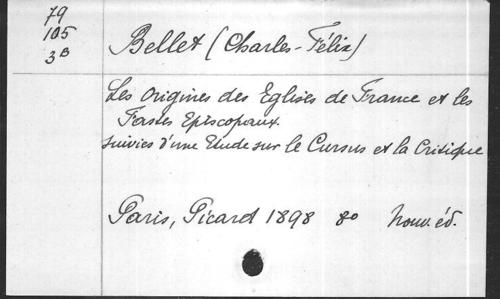 79
105
3B
Bellet (Charles-Félix)
Les Origines des Eglises de France et les
Fastes Episcopaux.
suivies d'une Etude sur le Cursus et la Critique
Paris, Picard 1898 8o Nouv. éd.